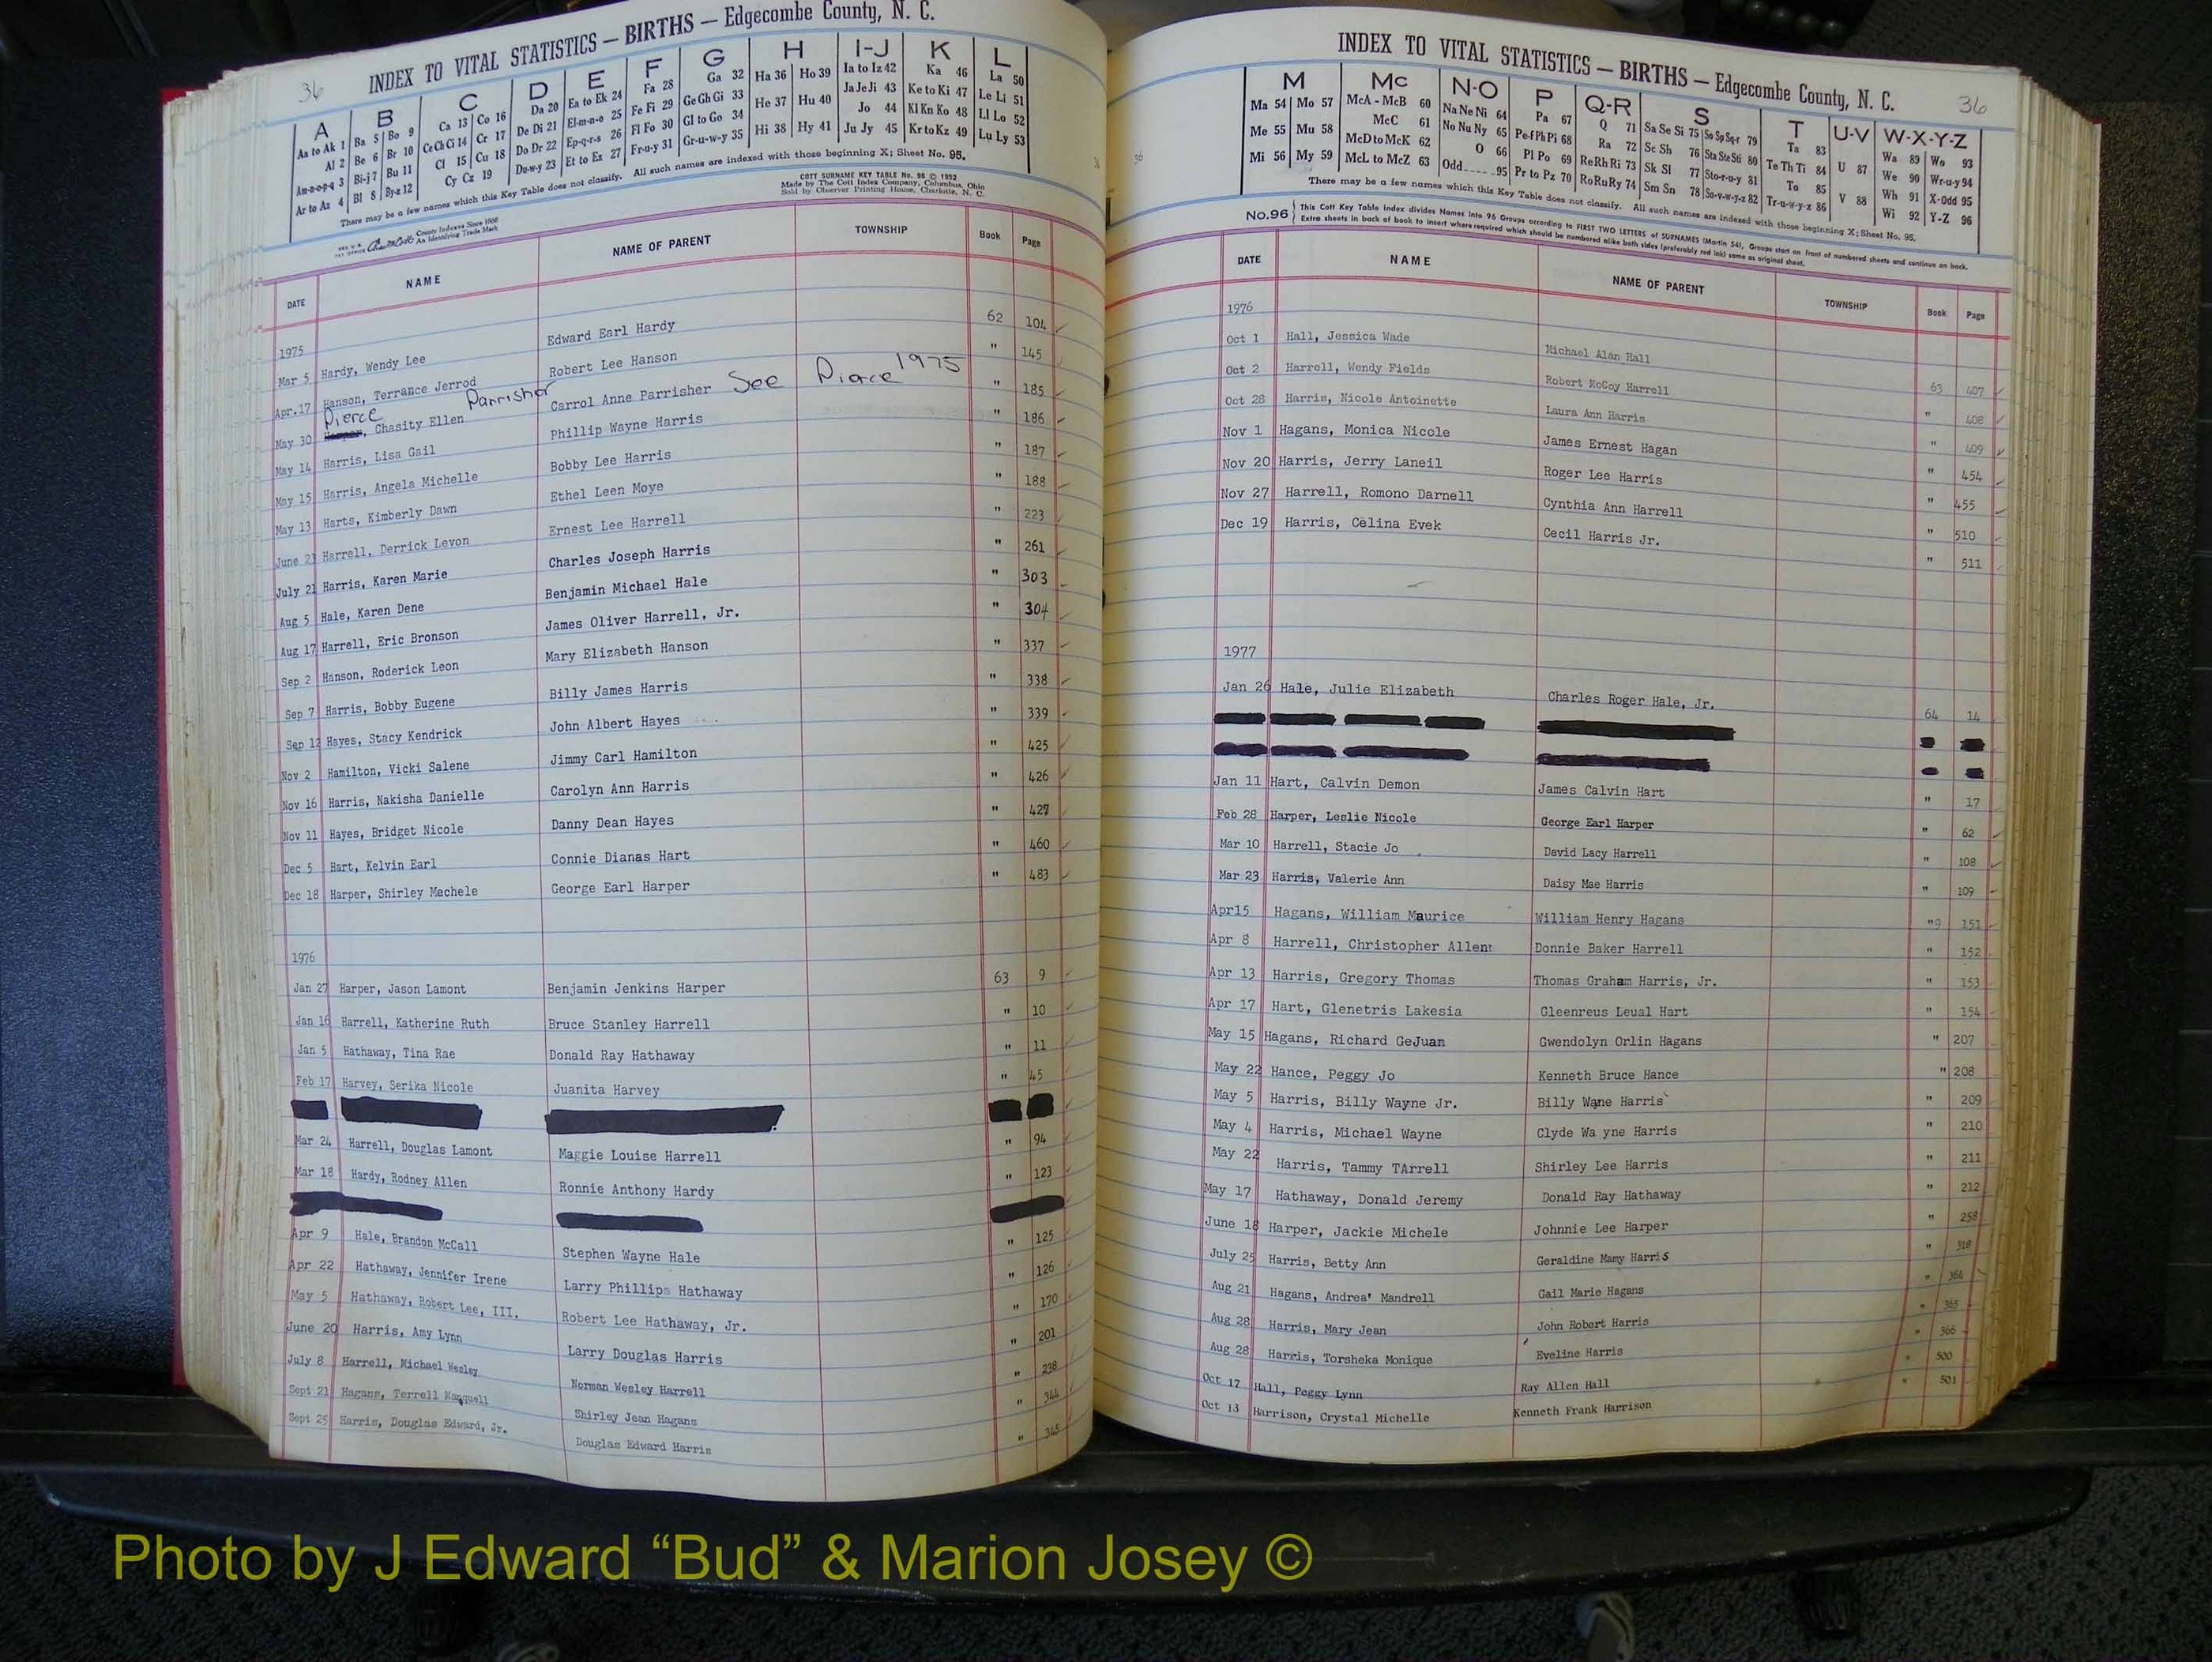 36
INDEX TO VITAL STATISTICS — BIRTHS — Edgecombe County, N. C.
A B C D E F G H I-J K L
Aa to Ak 1 Ba 5 Bo 9 Ca 13 Co 16 Da 20 Ea to Ek 24 Fa 28 Ga 32 Ha 36 Ho 39 Ia to Iz 42 Ka 46 La 50
Al 2 Be 6 Br 10 Ce Ch Ci 14 Cr 17 De Di 21 El-m-n-o 25 Fe Fi 29 Ge Gh Gi 33 He 37 Hu 40 Ja Je Ji 43 Ke to Ki 47 Le Li 51
Am-n-o-p-q 3 Bi-j 7 Bu 11 Cl 15 Cu 18 Do Dr 22 Ep-q-r-s 26 Fl Fo 30 Gl to Go 34 Hi 38 Hy 41 Jo 44 Kl Kn Ko 48 Ll Lo 52
Ar to Az 4 Bl 8 By-z 12 Cy Cz 19 Du-w-y 23 Et to Ex 27 Fr-u-y 31 Gr-u-w-y 35 Ju Jy 45 Kr to Kz 49 Lu Ly 53
There may be a few names which this Key Table does not classify. All such names are indexed with those beginning X; Sheet No. 95.
COTT SURNAME KEY TABLE No. 96 © 1952
Made by The Cott Index Company, Columbus, Ohio
Sold by Observer Printing House, Charlotte, N. C.
County Indexes Since 1888
An Identifying Trade Mark
DATE NAME NAME OF PARENT TOWNSHIP Book Page
1975
Mar 5 Hardy, Wendy Lee Edward Earl Hardy 62 104
Apr.17 Hanson, Terrance Jerrod Robert Lee Hanson " 145
Pierce Parrisher See Pierce 1975
May 30 , Chasity Ellen Carrol Anne Parrisher " 185
May 14 Harris, Lisa Gail Phillip Wayne Harris " 186
May 15 Harris, Angela Michelle Bobby Lee Harris " 187
May 13 Harts, Kimberly Dawn Ethel Leen Moye " 188
June 23 Harrell, Derrick Levon Ernest Lee Harrell " 223
July 21 Harris, Karen Marie Charles Joseph Harris " 261
Aug 5 Hale, Karen Dene Benjamin Michael Hale " 303
Aug 17 Harrell, Eric Bronson James Oliver Harrell, Jr. " 304
Sep 2 Hanson, Roderick Leon Mary Elizabeth Hanson " 337
Sep 7 Harris, Bobby Eugene Billy James Harris " 338
Sep 12 Hayes, Stacy Kendrick John Albert Hayes " 339
Nov 2 Hamilton, Vicki Salene Jimmy Carl Hamilton " 425
Nov 16 Harris, Nakisha Danielle Carolyn Ann Harris " 426
Nov 11 Hayes, Bridget Nicole Danny Dean Hayes " 427
Dec 5 Hart, Kelvin Earl Connie Dianas Hart " 460
Dec 18 Harper, Shirley Machele George Earl Harper " 483
1976
Jan 27 Harper, Jason Lamont Benjamin Jenkins Harper 63 9
Jan 16 Harrell, Katherine Ruth Bruce Stanley Harrell " 10
Jan 5 Hathaway, Tina Rae Donald Ray Hathaway " 11
Feb 17 Harvey, Serika Nicole Juanita Harvey " 45
Mar 24 Harrell, Douglas Lamont Maggie Louise Harrell " 94
Mar 18 Hardy, Rodney Allen Ronnie Anthony Hardy " 123
Apr 9 Hale, Brandon McCall Stephen Wayne Hale " 125
Apr 22 Hathaway, Jennifer Irene Larry Phillips Hathaway " 126
May 5 Hathaway, Robert Lee, III. Robert Lee Hathaway, Jr. " 170
June 20 Harris, Amy Lynn Larry Douglas Harris " 201
July 8 Harrell, Michael Wesley Norman Wesley Harrell " 238
Sept 21 Hagans, Terrell Shirley Jean Hagans " 344
Sept 25 Harris, Douglas Edward, Jr. Douglas Edward Harris " 345
INDEX TO VITAL STATISTICS — BIRTHS — Edgecombe County, N. C.
36
M Mc N-O P Q-R S T U-V W-X-Y-Z
Ma 54 Mo 57 McA - McB 60 Na Ne Ni 64 Pa 67 Q 71 Sa Se Si 75 So Sp Sq-r 79 Ta 83 U 87 Wa 89 Wo 93
Me 55 Mu 58 McC 61 No Nu Ny 65 Pe-f Ph Pi 68 Ra 72 Sc Sh 76 Sta Ste Sti 80 Te Th Ti 84 V 88 We 90 Wr-u-y 94
Mi 56 My 59 McD to McK 62 O 66 Pl Po 69 Re Rh Ri 73 Sk Sl 77 Sto-r-u-y 81 To 85 Wh 91 X-Odd 95
McL to McZ 63 Odd 95 Pr to Pz 70 Ro Ru Ry 74 Sm Sn 78 Su-v-w-y-z 82 Tr-u-w-y-z 86 Wi 92 Y-Z 96
There may be a few names which this Key Table does not classify. All such names are indexed with those beginning X; Sheet No. 95.
No.96 This Cott Key Table Index divides Names into 96 Groups according to FIRST TWO LETTERS of SURNAMES (Martin 54). Groups start on front of numbered sheets and continue on back.
Extra sheets in back of book to insert where required which should be numbered alike both sides (preferably red ink) same as original sheet.
DATE NAME NAME OF PARENT TOWNSHIP Book Page
1976
Oct 1 Hall, Jessica Wade Michael Alan Hall 63 407
Oct 2 Harrell, Wendy Fields Robert McCoy Harrell " 408
Oct 28 Harris, Nicole Antoinette Laura Ann Harris " 409
Nov 1 Hagans, Monica Nicole James Ernest Hagan " 454
Nov 20 Harris, Jerry Laneil Roger Lee Harris " 455
Nov 27 Harrell, Romono Darnell Cynthia Ann Harrell " 510
Dec 19 Harris, Celina Evek Cecil Harris Jr. " 511
1977
Jan 26 Hale, Julie Elizabeth Charles Roger Hale, Jr. 64 14
Jan 11 Hart, Calvin Demon James Calvin Hart " 17
Feb 28 Harper, Leslie Nicole George Earl Harper " 62
Mar 10 Harrell, Stacie Jo David Lacy Harrell " 108
Mar 23 Harris, Valerie Ann Daisy Mae Harris " 109
Apr15 Hagans, William Maurice William Henry Hagans "9 151
Apr 8 Harrell, Christopher Allen Donnie Baker Harrell " 152
Apr 13 Harris, Gregory Thomas Thomas Graham Harris, Jr. " 153
Apr 17 Hart, Glenetris Lakesia Gleenreus Leual Hart " 154
May 15 Hagans, Richard GeJuan Gwendolyn Orlin Hagans " 207
May 22 Hance, Peggy Jo Kenneth Bruce Hance " 208
May 5 Harris, Billy Wayne Jr. Billy Wane Harris " 209
May 4 Harris, Michael Wayne Clyde Wa yne Harris " 210
May 22 Harris, Tammy TArrell Shirley Lee Harris " 211
May 17 Hathaway, Donald Jeremy Donald Ray Hathaway " 212
June 18 Harper, Jackie Michele Johnnie Lee Harper " 258
July 25 Harris, Betty Ann Geraldine Mamy Harris " 318
Aug 21 Hagans, Andrea' Mandrell Gail Marie Hagans " 364
Aug 28 Harris, Mary Jean John Robert Harris " 365
Aug 28 Harris, Torsheka Monique Eveline Harris " 366
Oct 17 Hall, Peggy Lynn Ray Allen Hall " 500
Oct 13 Harrison, Crystal Michelle Kenneth Frank Harrison " 501
Photo by J Edward “Bud” & Marion Josey ©